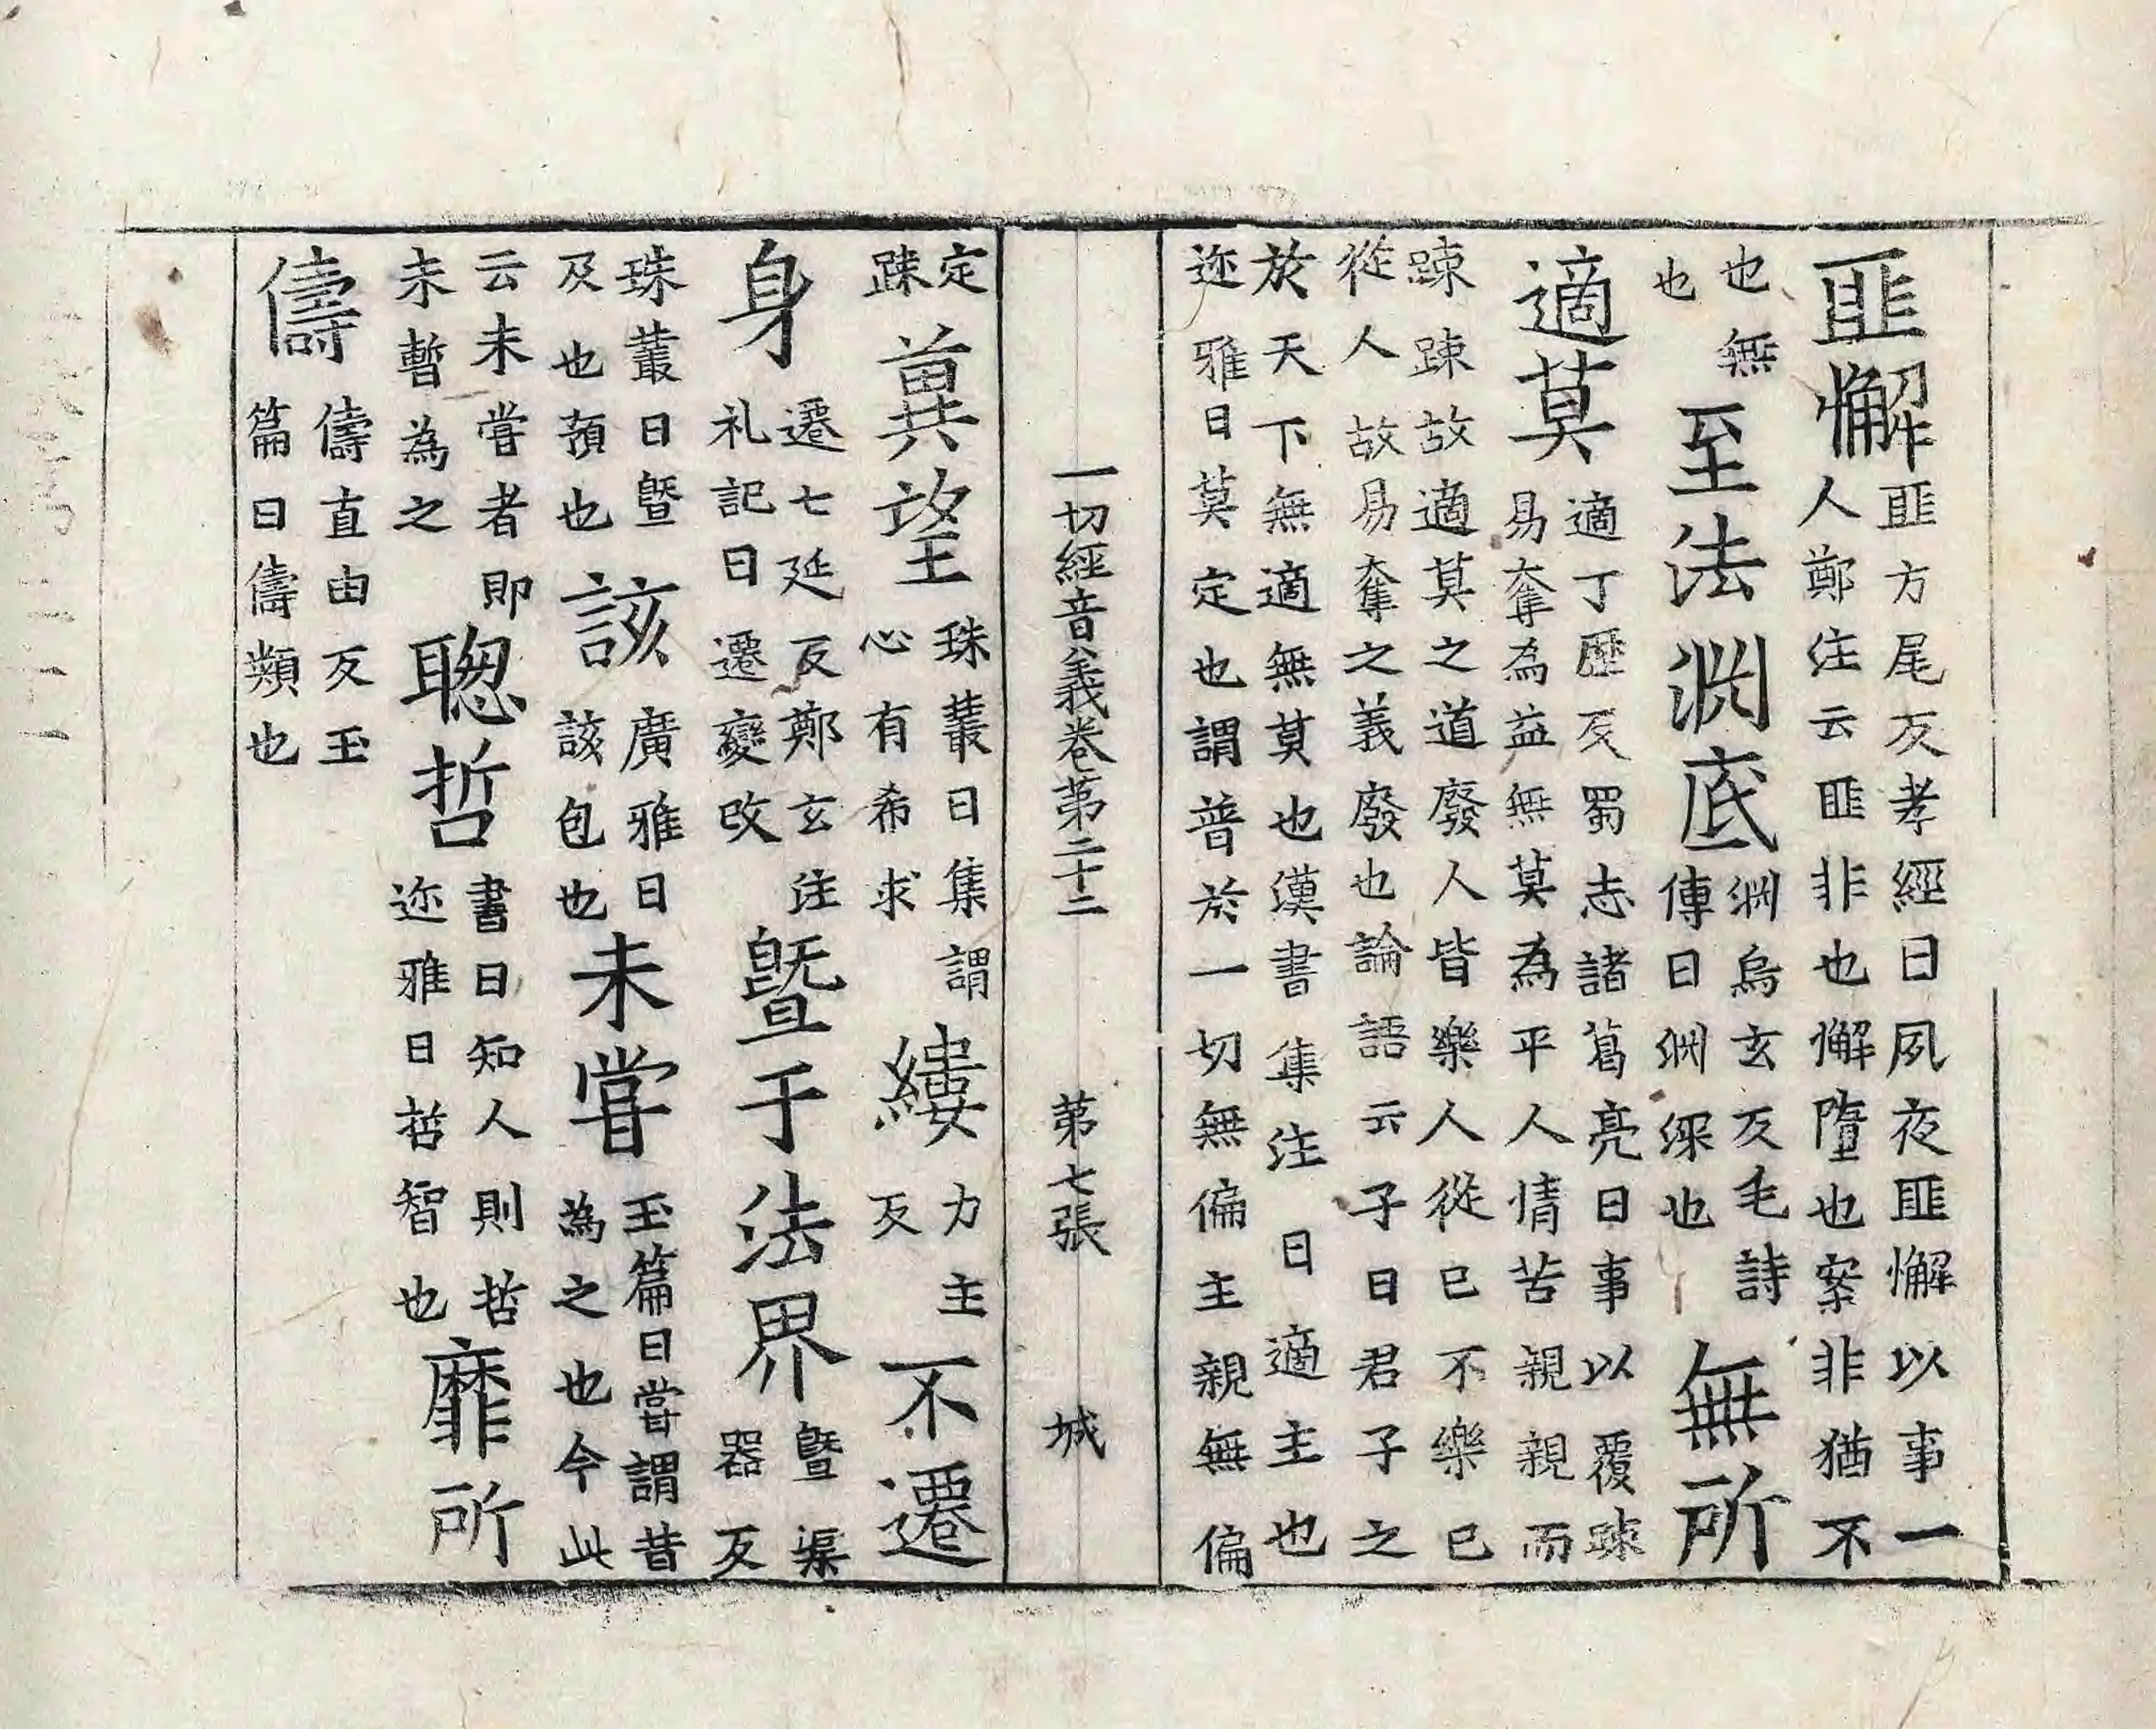 匪懈匪方尾反孝經曰夙夜匪懈以事一人鄭注云匪非也懈墮也案非猶不
也無也至法淵底淵烏玄反毛詩傳曰淵深也無所
適莫適丁歷反蜀志諸葛亮曰事以覆踈易奪為益無莫為平人情苦親親而
踈踈故適莫之道廢人皆樂人從已不樂已從人故易奪之義廢也論語云子曰君子之
於天下無適無莫也漢書集注曰適主也迩雅曰莫定也謂普於一切無偏主親無偏
一切經音義卷第二十二 第七張 城
定踈兾望珠叢曰集謂心有希求縷力主反不遷
身遷七延反鄭玄注礼記曰遷變改曁于法界曁渠器反
珠叢曰曁及也頛也該廣雅曰該包也未甞玉篇曰甞謂昔為之也今此
云未甞者即未暫為之聦哲書曰知人則哲迩雅曰哲智也靡所
儔儔直由反玉篇曰儔類也